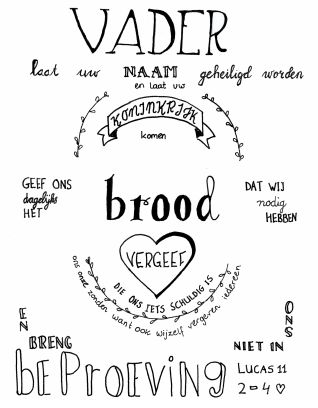 VADER
laat uw NAAM geheiligd worden
en laat uw
KONINKRIJK
komen
GEEF ONS
dagelijks
HET
brood
DAT WIJ
nodig
HEBBEN
VERGEEF
ons onze zonden want ook wijzelf vergeven iedereen
DIE ONS IETS SCHULDIG IS
EN
BRENG
ONS
NIET IN
bEPROEVING
LUCAS 11
2-4 ♡